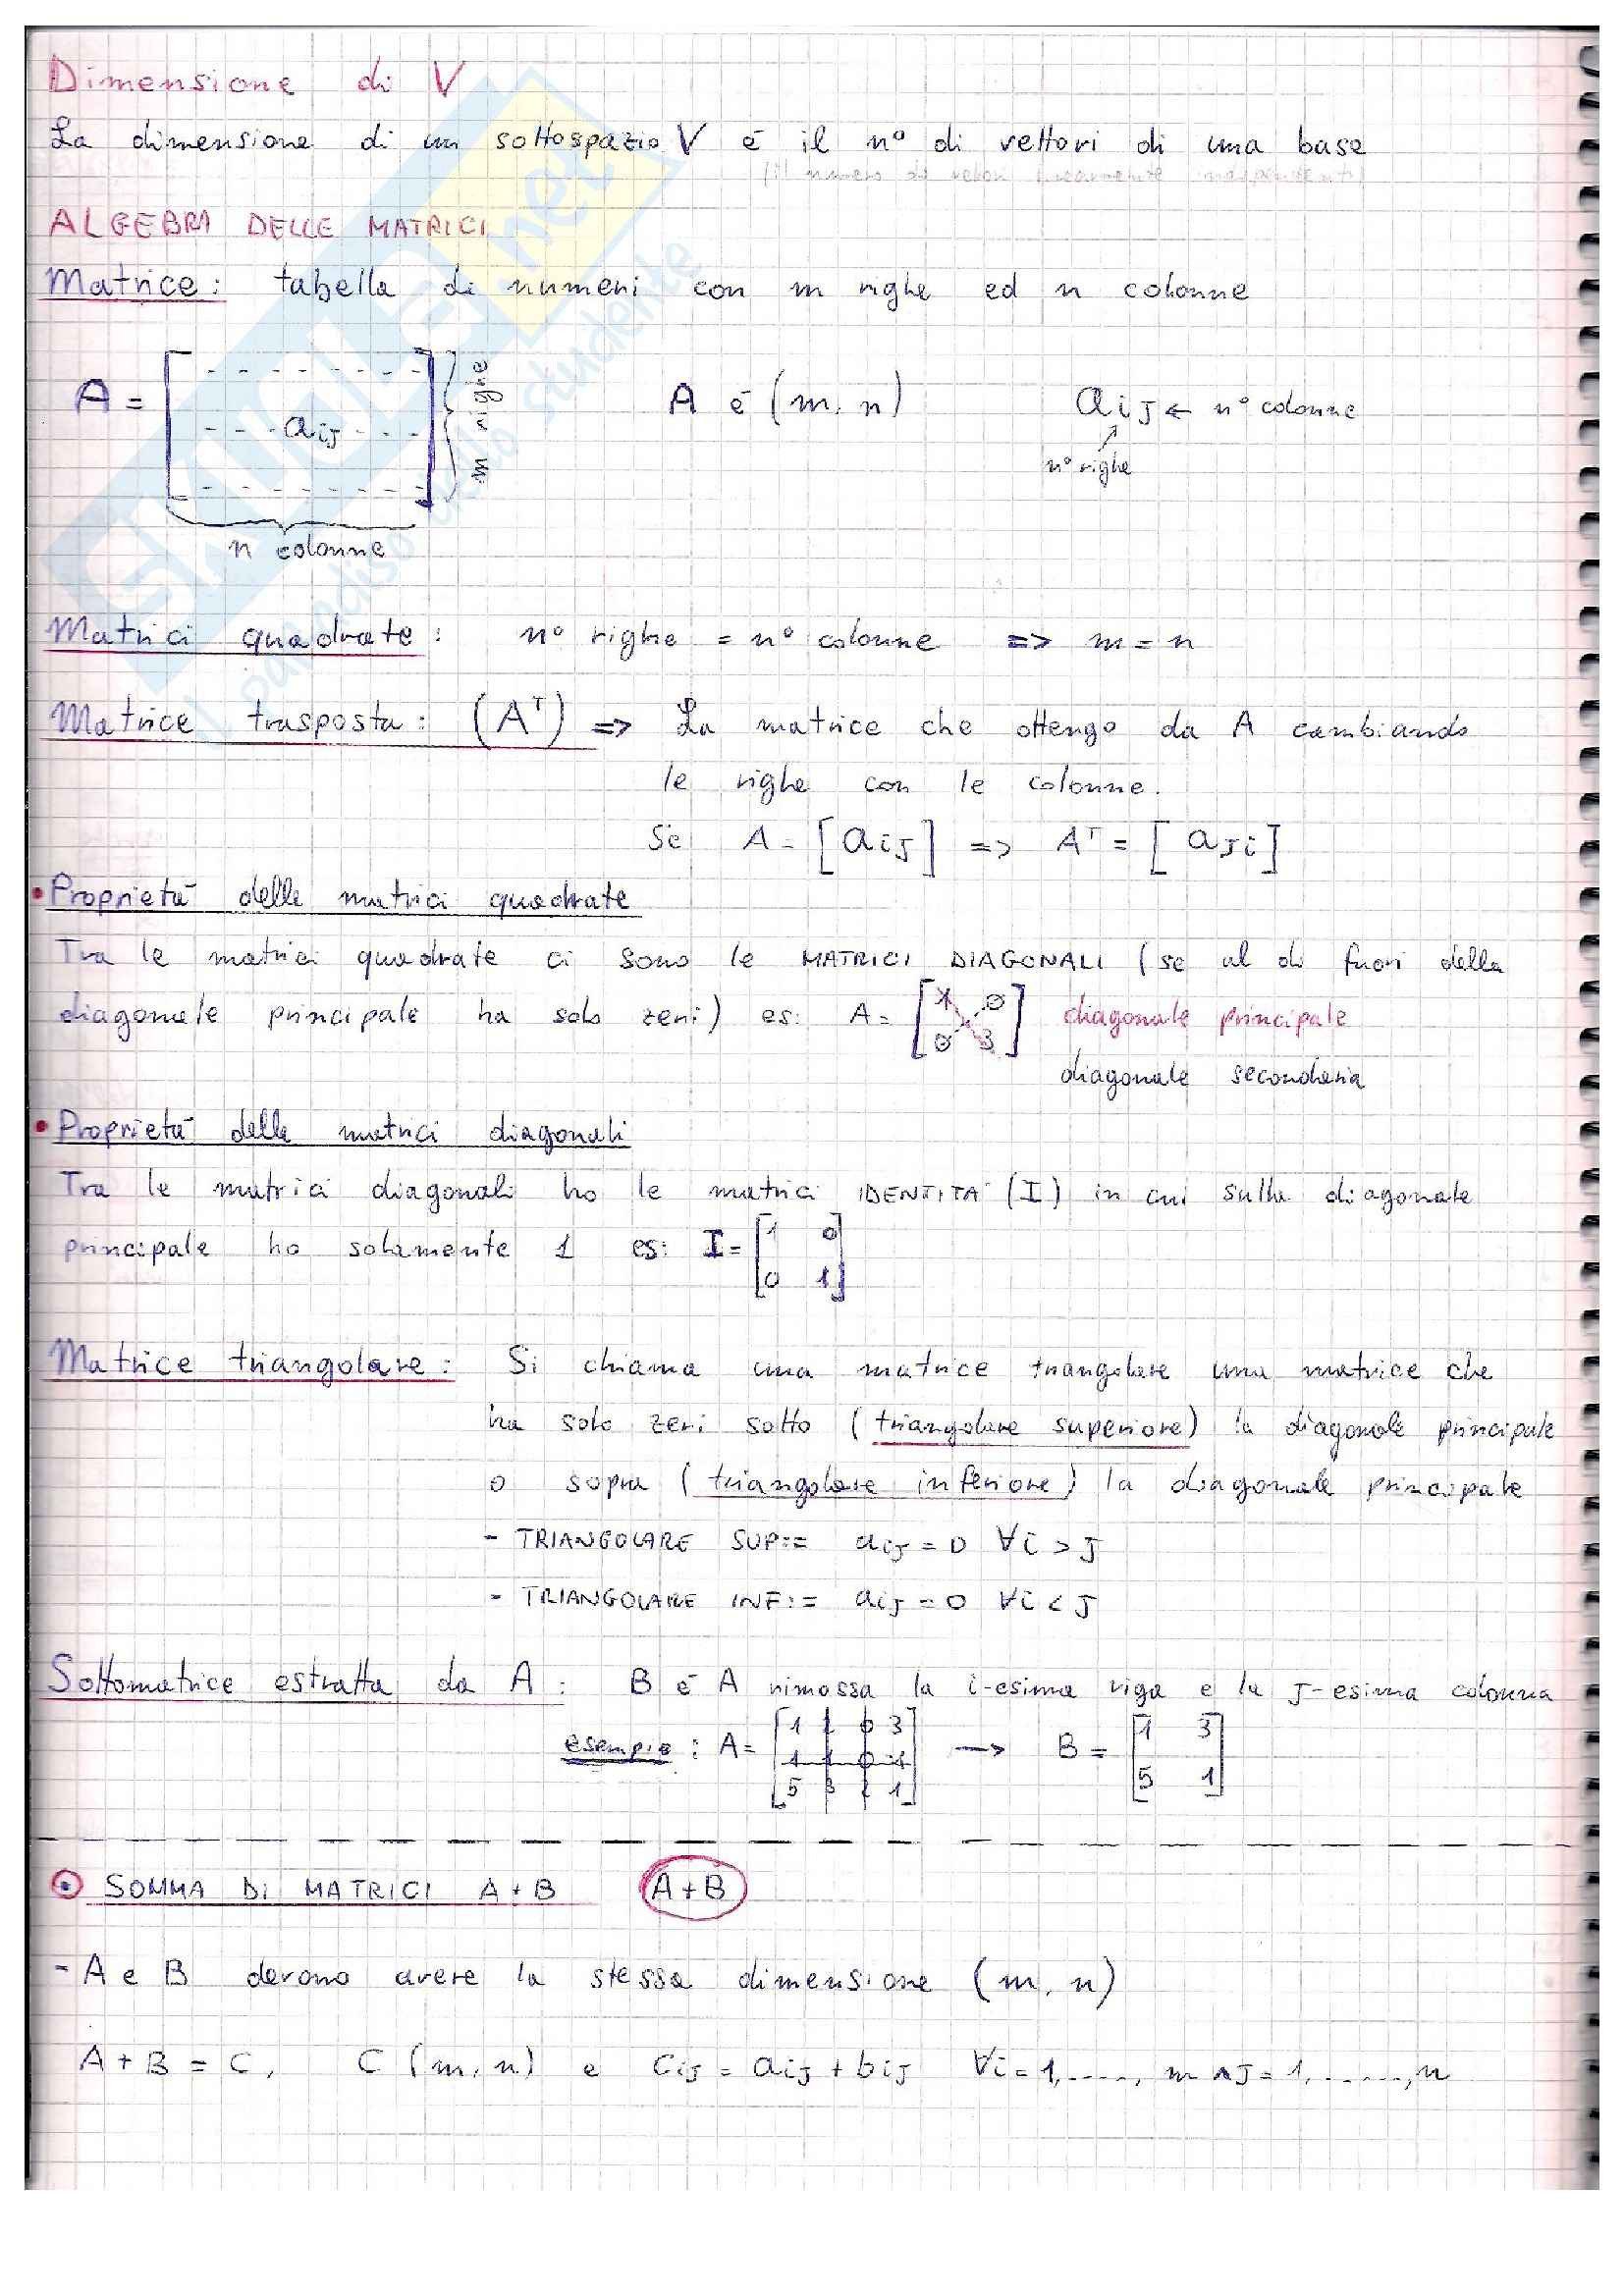 Dimensione di V
La dimensione di un sottospazio V è il n° di vettori di una base
(il numero di vettori linearmente indipendenti)
ALGEBRA DELLE MATRICI
Matrice: tabella di numeri con m righe ed n colonne
A = [ aij ] m righe A è (m, n) aij ← n° colonne
n° righe
n colonne
Matrici quadrate: n° righe = n° colonne => m = n
Matrice trasposta: (Aᵀ) => La matrice che ottengo da A cambiando
le righe con le colonne.
Se A = [aij] => Aᵀ = [aji]
• Proprietà delle matrici quadrate
Tra le matrici quadrate ci sono le MATRICI DIAGONALI (se al di fuori della
diagonale principale ha solo zeri) es: A = [1 0 / 0 3] diagonale principale
diagonale secondaria
• Proprietà delle matrici diagonali
Tra le matrici diagonali ho le matrici IDENTITÀ (I) in cui sulla diagonale
principale ho solamente 1 es: I = [1 0 / 0 1]
Matrice triangolare: Si chiama una matrice triangolare una matrice che
ha solo zeri sotto (triangolare superiore) la diagonale principale
o sopra (triangolare inferiore) la diagonale principale
- TRIANGOLARE SUP:= aij = 0 ∀i > j
- TRIANGOLARE INF:= aij = 0 ∀i < j
Sottomatrice estratta da A: B è A rimossa la i-esima riga e la j-esima colonna
esempio: A = [1 1 0 3 / 1 1 0 1 / 5 3 1] → B = [1 3 / 5 1]
SOMMA DI MATRICI A+B A+B
- A e B devono avere la stessa dimensione (m, n)
A + B = C, C (m, n) e cij = aij + bij ∀i = 1, ....., m ∧ j = 1, ......, n
SKUOLA.net
il paradiso dello studente